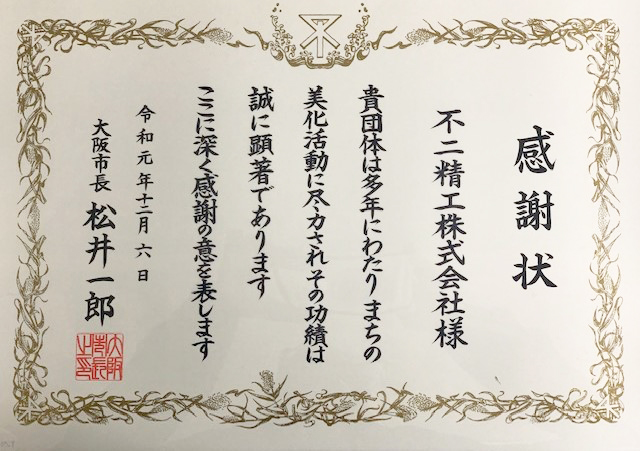 感謝状
不二精工株式会社様
貴団体は多年にわたりまちの
美化活動に尽力されその功績は
誠に顕著であります
ここに深く感謝の意を表します
令和元年十二月六日
大阪市長 松井一郎
大阪市長之印